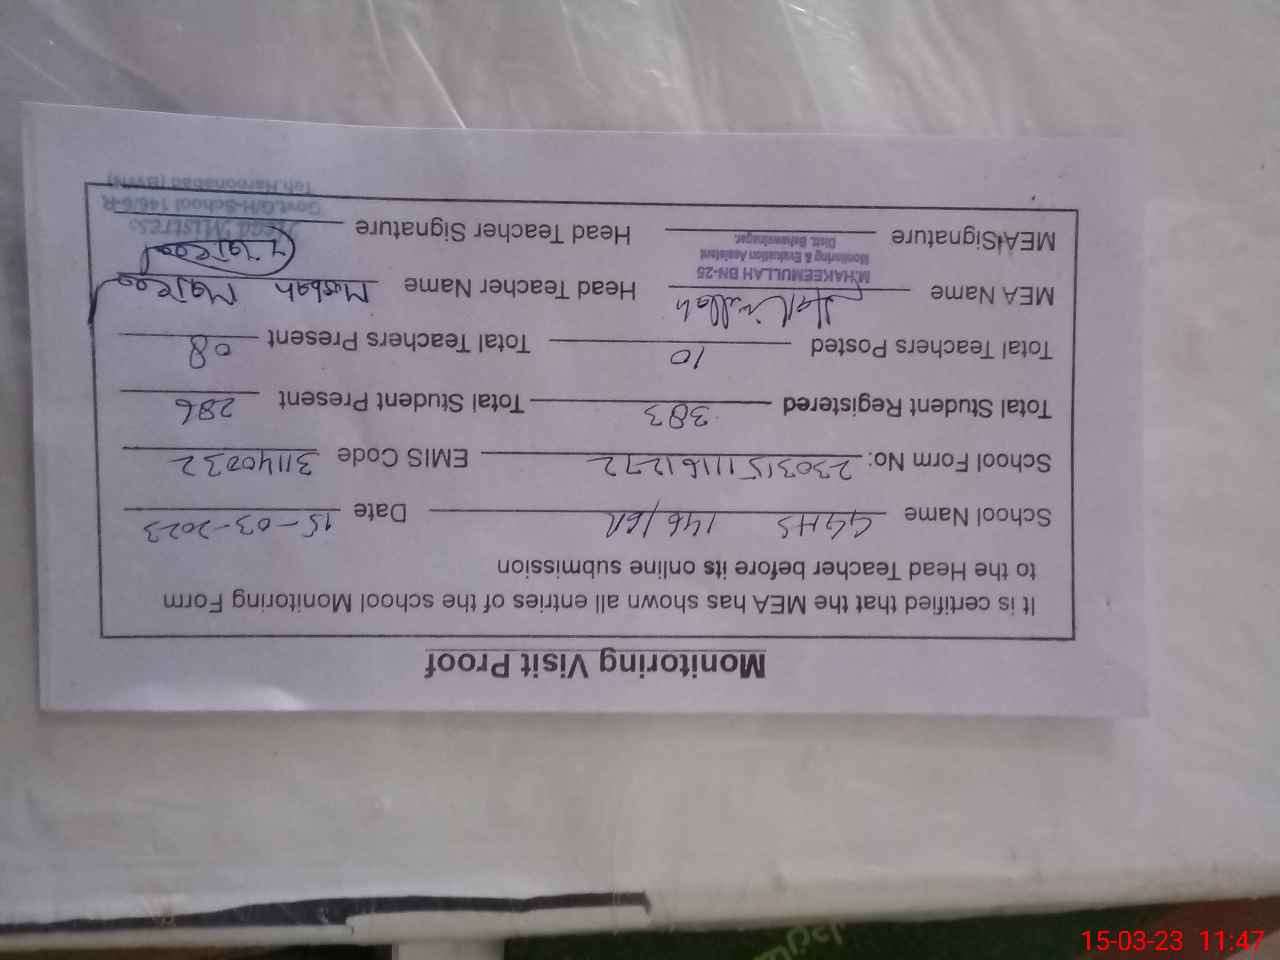 Monitoring Visit Proof
It is certified that the MEA has shown all entries of the school Monitoring Form
to the Head Teacher before its online submission
School Name GGHS 146/6R Date 15-03-2023
School Form No: 23031511161272 EMIS Code 31140232
Total Student Registered 383 Total Student Present 286
Total Teachers Posted 10 Total Teachers Present 08
MEA Name Hakimullah Head Teacher Name Musbah Majeed
M.HAKEEMULLAH BN-25
Monitoring & Evaluation Assistant
Distt. Bahawalnagar.
MEA Signature Head Teacher Signature Majeed
Head Mistress
Govt.G/H-School 146/6-R
Teh.Haroonabad (BWN)
15-03-23 11:47